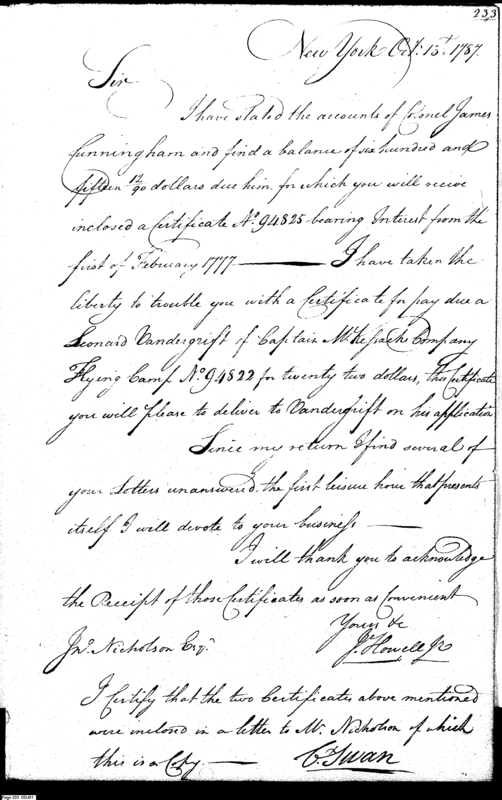 233
New York Octr. 15th. 1787.
Sir
I have stated the accounts of Colonel James
Cunningham and find a balance of six hundred and
fifteen 12/90 dollars due him, for which you will recive
inclosed a Certificate No. 94825 bearing Interest from the
first of February 1777 — I have taken the
liberty to trouble you with a Certificate for pay due a
Leonard Vandergrift of Captain Company
Flying Camp No. 94822 for twenty two dollars, this Certificate
you will please to deliver to Vandergrift on his application
Since my return I find several of
your Letters unanswered, the first leisure hour that presents
itself I will devote to your business —
I will thank you to acknowledge
the Receipt of those Certificates as soon as Convenient
Yours &c
Jno. Nicholson Esqr. J. Howell Jr
I Certify that the two Certificates above mentioned
were inclosed in a letter to Mr. Nicholson of which
this is a Copy. — C. Swan
Page 233